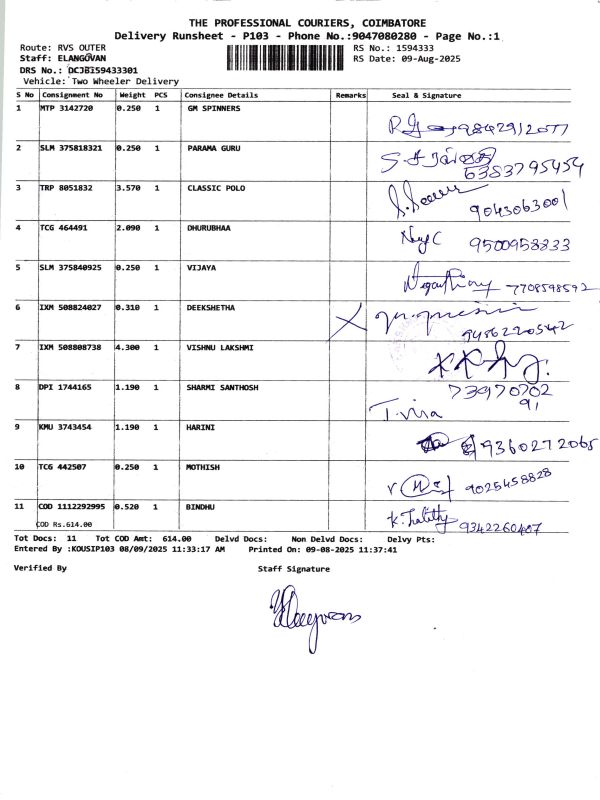 THE PROFESSIONAL COURIERS, COIMBATORE
Delivery Runsheet - P103 - Phone No.:9047080280 - Page No.:1
Route: RVS OUTER RS No.: 1594333
Staff: ELANGOVAN RS Date: 09-Aug-2025
DRS No.: DCJB1594333301
Vehicle: Two Wheeler Delivery
S No Consignment No Weight PCS Consignee Details Remarks Seal & Signature
1 MTP 3142720 0.250 1 GM SPINNERS
9842912077
2 SLM 375818321 0.250 1 PARAMA GURU
6383795454
3 TRP 8051832 3.570 1 CLASSIC POLO
9043063001
4 TCG 464491 2.090 1 DHURUBHAA
9500958333
5 SLM 375840925 0.250 1 VIJAYA
7708598592
6 IXM 508824027 0.310 1 DEEKSHETHA
9486220542
7 IXM 508808738 4.300 1 VISHNU LAKSHMI
8 DPI 1744165 1.190 1 SHARMI SANTHOSH
73970702
91
T.vira
9 KMU 3743454 1.190 1 HARINI
9360272065
10 TCG 442507 0.250 1 MOTHISH
9025458828
11 COD 1112292995 0.520 1 BINDHU
COD Rs.614.00
9342260407
Tot Docs: 11 Tot COD Amt: 614.00 Delvd Docs: Non Delvd Docs: Delvy Pts:
Entered By :KOUSIP103 08/09/2025 11:33:17 AM Printed On: 09-08-2025 11:37:41
Verified By Staff Signature